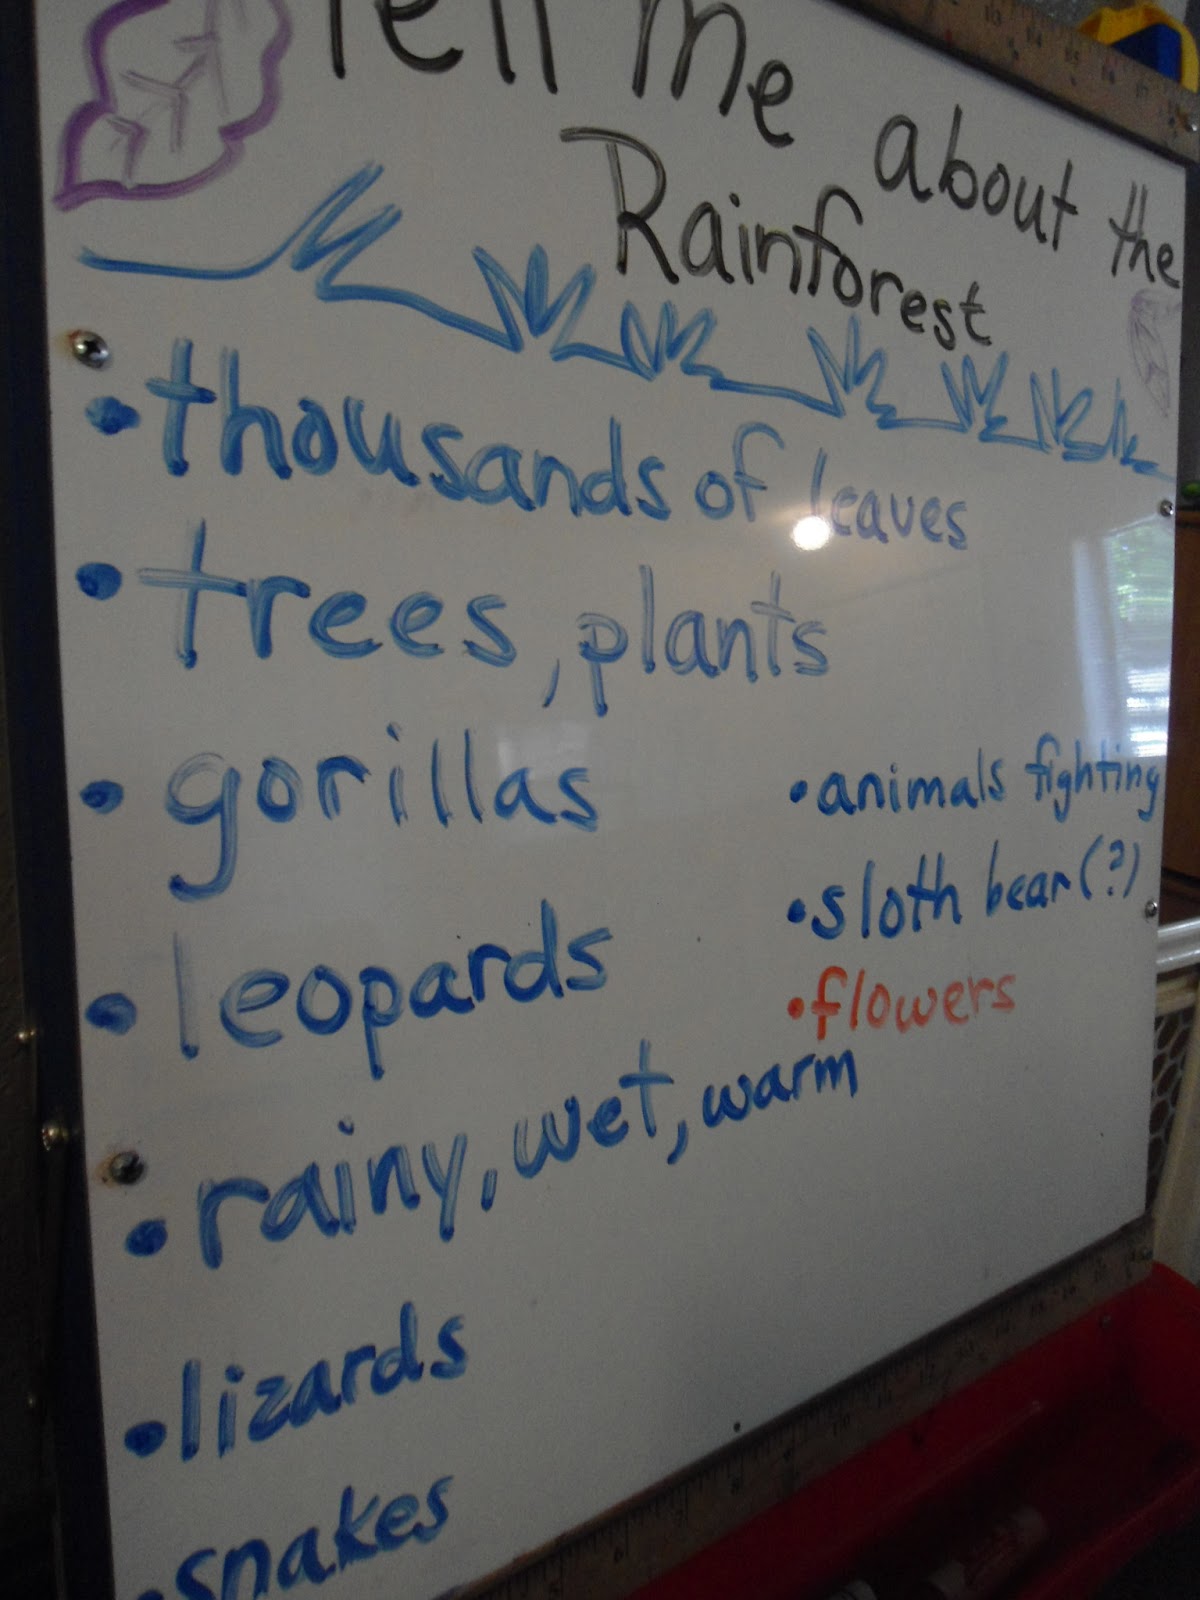 Tell me about the
Rainforest
• thousands of leaves
• trees, plants
• gorillas
• leopards
• rainy, wet, warm
• lizards
• snakes
• animals fighting
• sloth bear (?)
• flowers